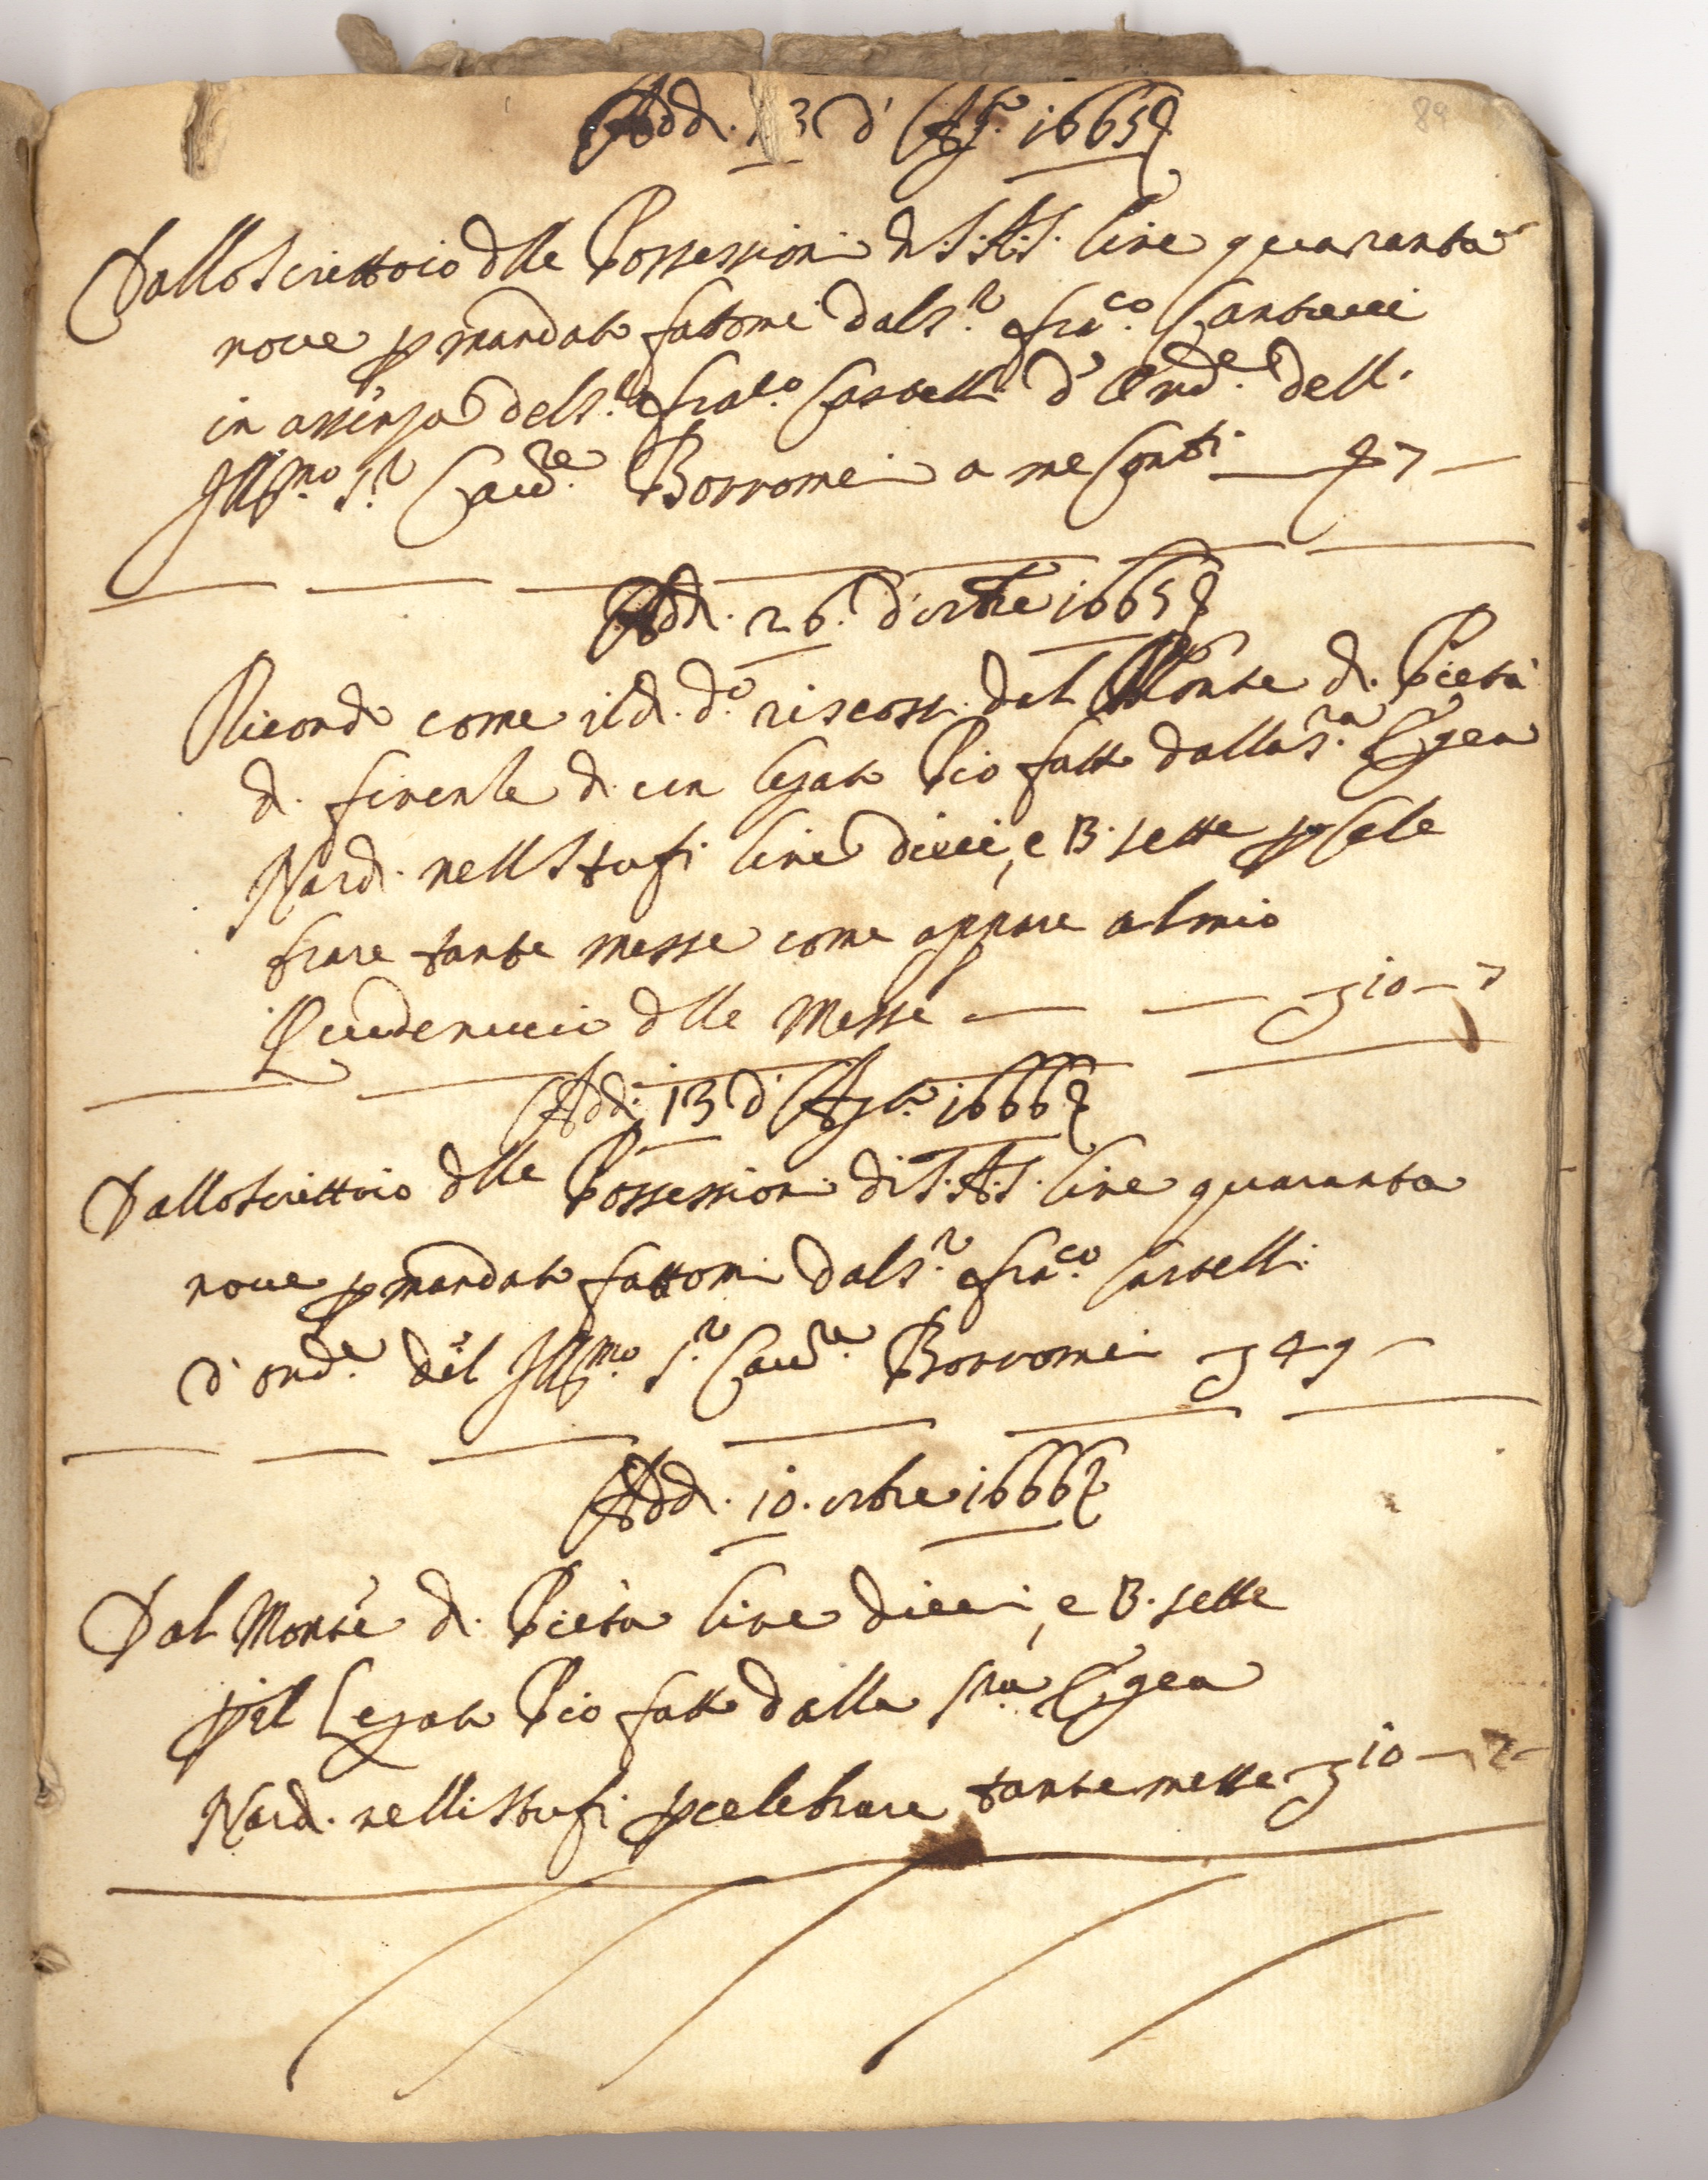 Add. 13 d' Ag.to 1665
Dallo Scrittoio dlle Possessioni di S.A.S. lire quaranta
noue p mandato fattomi dal S.r Fra.co Cantucci
in assenza del S.r Fra.co Castelli d'Ord.e dell.
Ill.mo S.r Cau.re Borromei a me Conti
Add. 26. d'ottbre 1665
Ricordo come il d. d.o riscossi dal Monte di Pietà
di firenze di un legato Pio fatto dalla S.ra Egea
Nardi nelli Stufi lire dieci, e B. sette p Cele
brare tante messe come appare al mio
Quadernucci dlle Messe — — 10 — 7
Add. 13 d' Ag.to 1666
Dallo Scrittoio dlle Possessioni di S.A.S. lire quaranta
noue p mandato fattomi dal S.r Fra.co Castelli
d'ord.e del Ill.mo S.r Cau.re Borromei 49 —
Add. 10. ottbre 1666
Dal Monte di Pietà lire dieci, e B. sette
p il Legato Pio fatto dalla S.ra Egea
Nardi nelli Stufi p celebrare tante messe 10 — 7 —
89